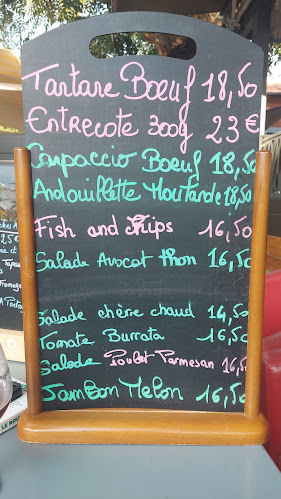 Tartare Boeuf 18,50
Entrecote 300g 23€
Carpaccio Boeuf 18,50
Andouillette Moutarde 18,50
Fish and chips 16,50
Salade Avocat thon 16,50
Salade chèvre chaud 14,50
Tomate Burrata 16,50
Salade Poulet Parmesan 16,50
Jambon Melon 16,50